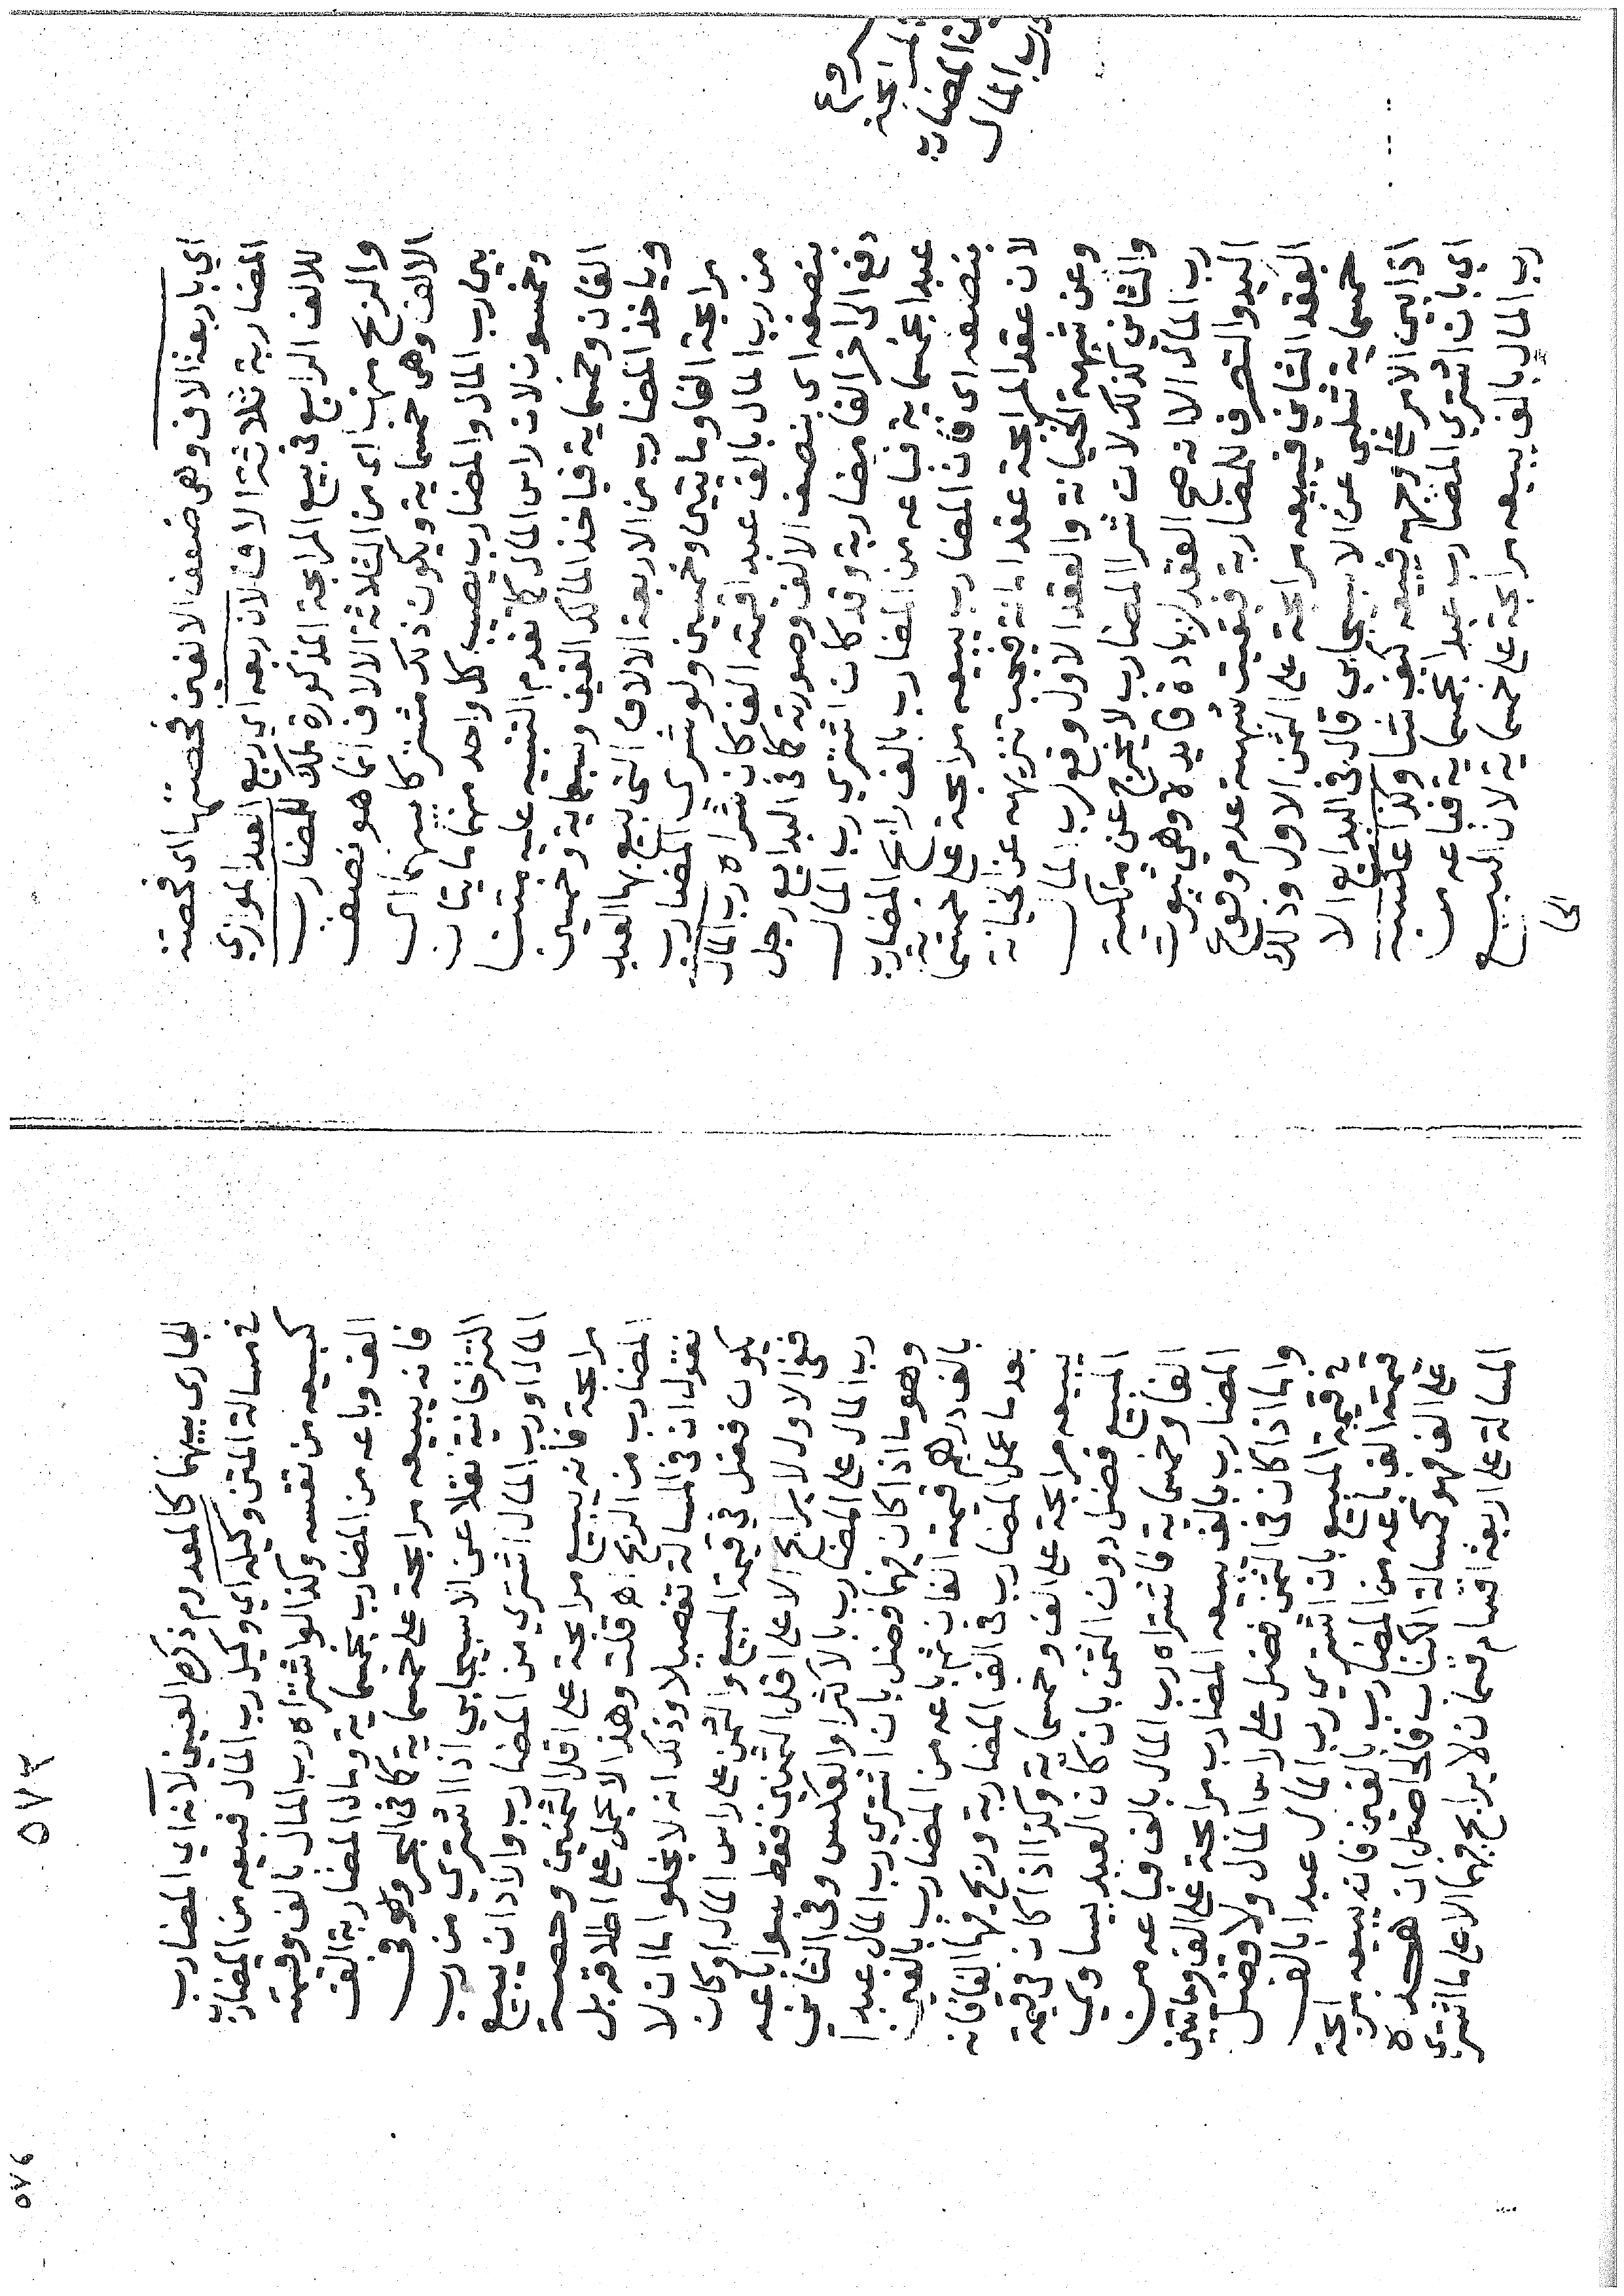 اي باربعة الاف وهي ضعف الالفين فحصتها اي فحصة
المضاربة ثلاثة الاف لان ربعه اي ربع العبد الموازي
للالف الرابع في بيع المرابحة المذكورة ملك للمضارب
والربح منها اي من الثلاثة الالاف انما هو نصف
الالف وهي خمسماية ويكون ذلك مشتركا بينهما اي
بين رب المال والمضارب نصيب كل واحد منهما مايتان
وخمسون لان راس المال كما تقدم التنبيه عليه متنا
الفان وخمسماية فياخذ المالك الفين وسبعماية وخمسين
وياخذ المضارب من الاربعة الالاف التي بيع بها العبد
مرابحة الفا ومايتين وخمسين ولو شرى المضارب
من رب المال بالف عبدا قيمته الف كان شراه رب المال
بنصفه اي بنصف الالف وصورته كما في البدايع رجل
دفع الى اخر الفا مضاربة وقد كان اشتري رب المال
عبدا بخمسماية فباعه من المضارب بالف رابح المضارب
بنصفه اي فان المضارب يبيعه مرابحة على خمسماية
لان عقد المرابحة عقد امانة فيجب تنزيهه عن الخيانة
وعن شبهة الخيانة والعقد الاول وقع لرب المال
والثاني كذلك لان شرا المضارب لا يخرج عن ملكية
رب المال الا انه صح العقد لزيادة فايدة وهي ثبوت
اليد والتصرف للمضاربة فبقيت شبهة عدم وقوع
العقد الثاني فيبيعه مرابحة على الثمن الاول وذلك
خمسماية شلبي عن الاسبيجابي قال في البدايع الا
اذا بين الامر على وجهه فيبيعه كيف شا وكذا عكسه
اي بان اشتري المضارب عبدا بخمسماية فباعه من
رب المال بالف يبيعه مرابحة على خمسماية لان البيع
الجا
المرابحة
المضارب
رب المال
٥٧٣
الجاري بينهما كالمعدوم ذكره العيني لانه اي المضارب
في مسالة المتن وكيله اي وكيل رب المال فبيعه من المضارب
كبيعه من نفسه وكذا لو اشتراه رب المال بالف وقيمته
الف وباعه من المضارب بخمسماية ومال المضاربة الف
فانه يبيعه مرابحة على خمسماية كما في البحر وفي
التترخانية نقلا عن الاسبيجابي اذا اشتري من رب
المال او رب المال اشتري من المضارب وارادان يبيع
مرابحة فانه يبيع مرابحة على اقل الثمنين وحصة
المضارب من الربح اه قلت وهذا لا يحمل على اطلاقه بل
نقول ان في المسالة تفصيلا وذلك انه لا يخلو اما ان لا
يكون فضل في قيمة المبيع والثمن على راس المال او كان
ففي الاول لا يرابح الا على اقل الثمنين فقط سوا باعه
رب المال على المضارب بالاكثر او العكس وفي الثاني
وهو ما اذا كان فيهما فضل بان اشتري رب المال عبدا
بالف درهم قيمته الفان ثم باعه من المضارب بالفين
بعد ما عمل المضارب في الف المضاربة وربح فيها الفا فانه
يبيعه مرابحة على الف وخمسماية وكذا اذا كان في قيمة
المبيع فضل دون الثمن بان كان العبد يساوي
الفا وخمسماية فاشتراه رب المال بالف فباعه من
المضارب بالف يبيعه المضارب مرابحة على الف ومايتين
واما اذا كان في الثمن فضل على راس المال ولا فضل
في قيمة المبيع بان اشتري رب المال عبدا بالف
قيمته الف باعه من المضارب بالفين فانه يبيعه مرابحة
على الف فهو كمسالة الكتاب فالحاصل ان هذه
المسالة على اربعة اقسام قسمان لا يرابح فيهما الا على ما اشتري
٥٧٤